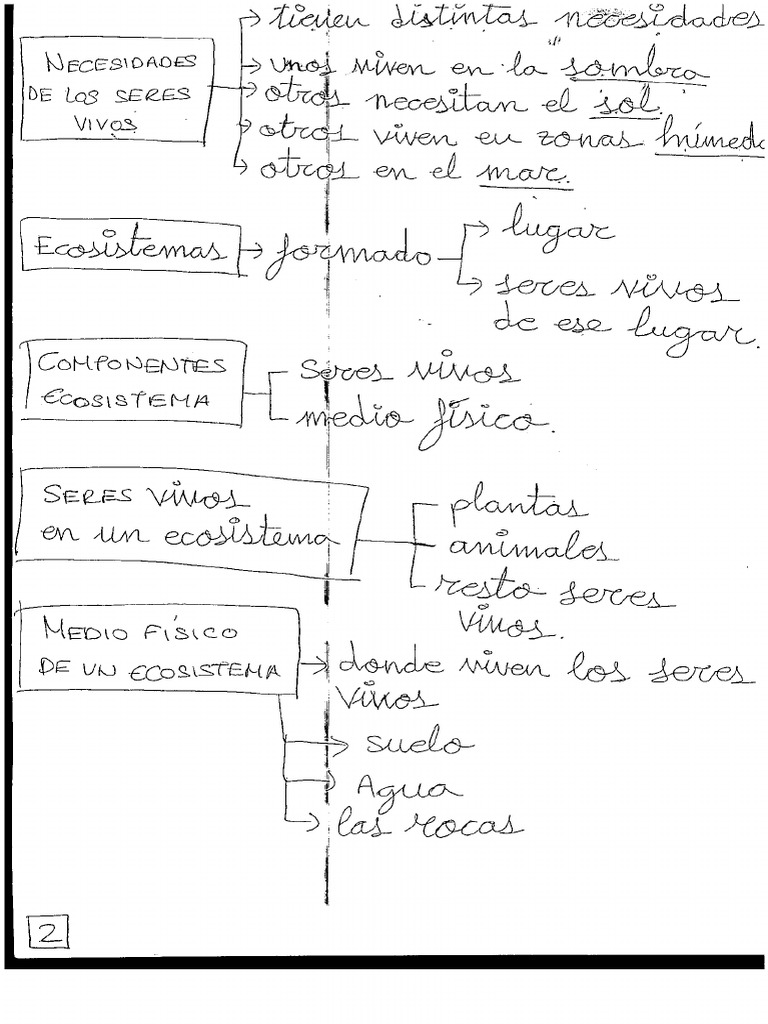 tienen distintas necesidades
NECESIDADES
DE LOS SERES
VIVOS
unos viven en la sombra
otros necesitan el sol.
otros viven en zonas húmeda
otros en el mar.
Ecosistemas formado lugar
seres vivos
de ese lugar.
COMPONENTES
ECOSISTEMA
seres vivos
medio físico.
SERES VIVOS
en un ecosistema
plantas
animales
resto seres
vivos.
MEDIO FÍSICO
DE UN ECOSISTEMA
donde viven los seres
vivos
suelo
Agua
las rocas
2